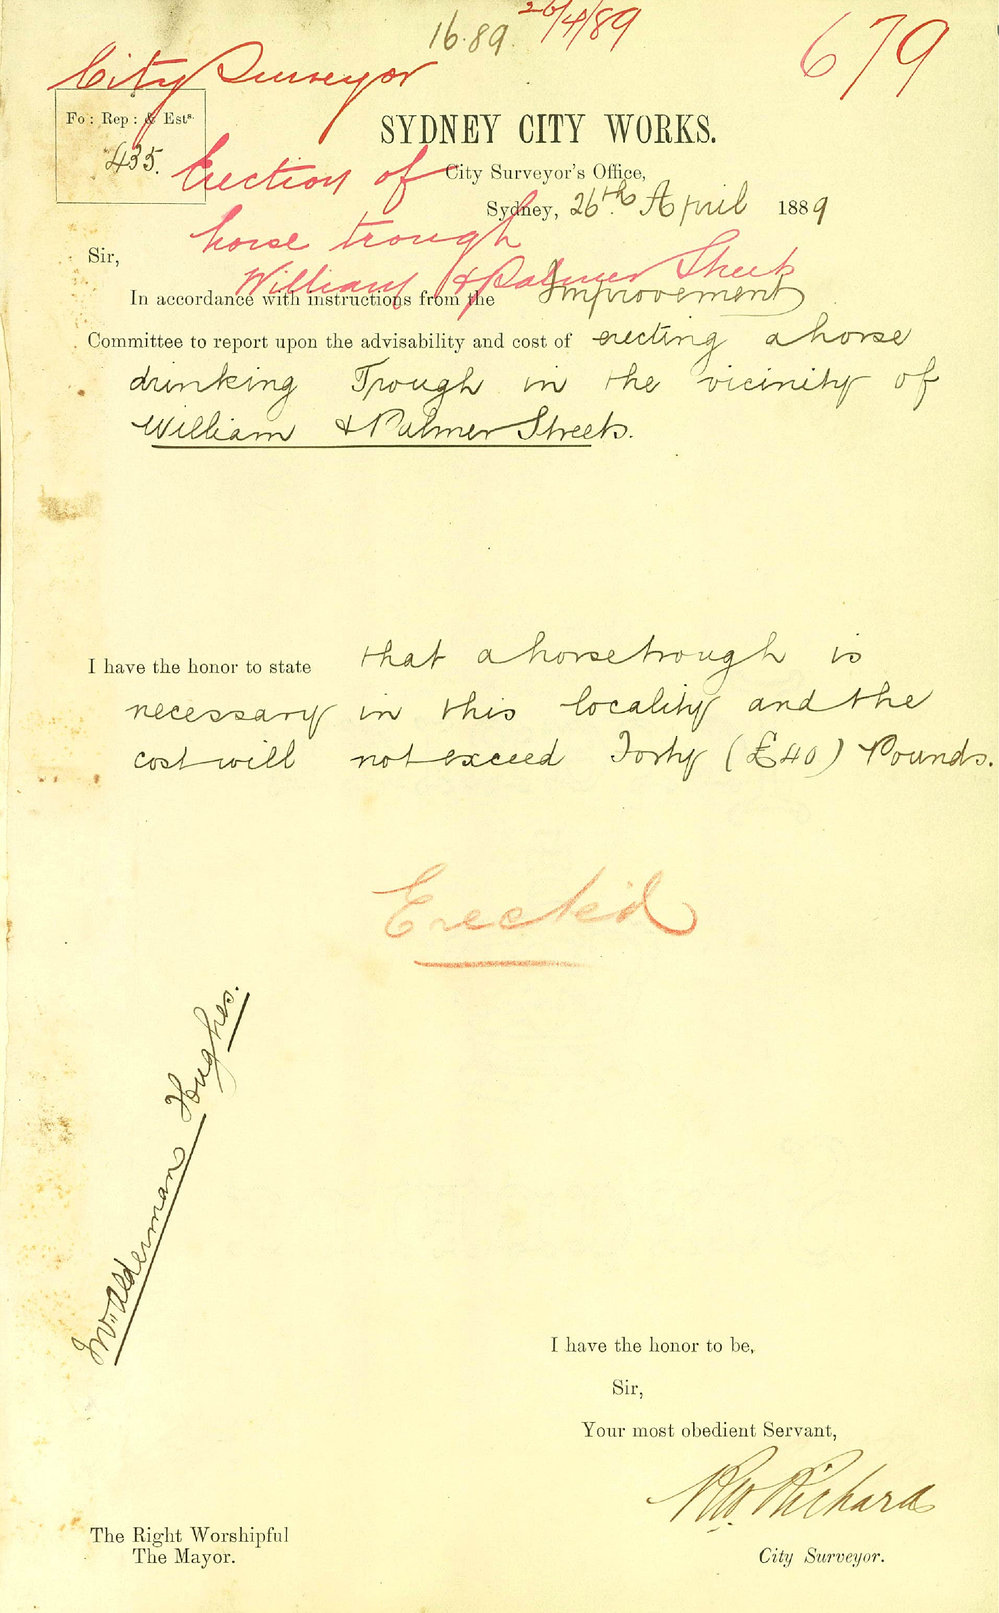 16.89.
26/4/89
679
City Surveyor
Fo: Rep: & Ests.
435.
SYDNEY CITY WORKS.
Erection of
horse trough
William & Palmer Streets
City Surveyor's Office,
Sydney, 26th April 1889
Sir,
In accordance with instructions from the Improvement
Committee to report upon the advisability and cost of erecting a horse
drinking Trough in the vicinity of
William & Palmer Streets.
I have the honor to state that a horse trough is
necessary in this locality and the
cost will not exceed Forty (£40) Pounds.
Erected
Mr Alderman Hughes.
I have the honor to be,
Sir,
Your most obedient Servant,
RW Richards
City Surveyor.
The Right Worshipful
The Mayor.